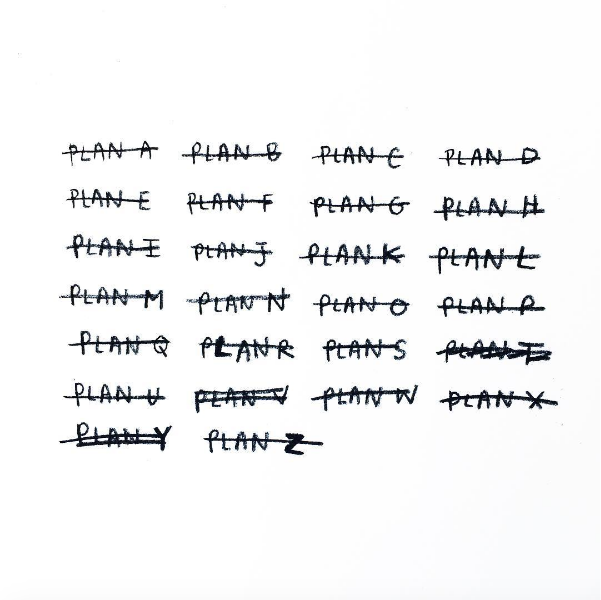 PLAN A PLAN B PLAN C PLAN D
PLAN E PLAN F PLAN G PLAN H
PLAN I PLAN J PLAN K PLAN L
PLAN M PLAN N PLAN O PLAN P
PLAN Q PLAN R PLAN S PLAN T
PLAN U PLAN V PLAN W PLAN X
PLAN Y PLAN Z